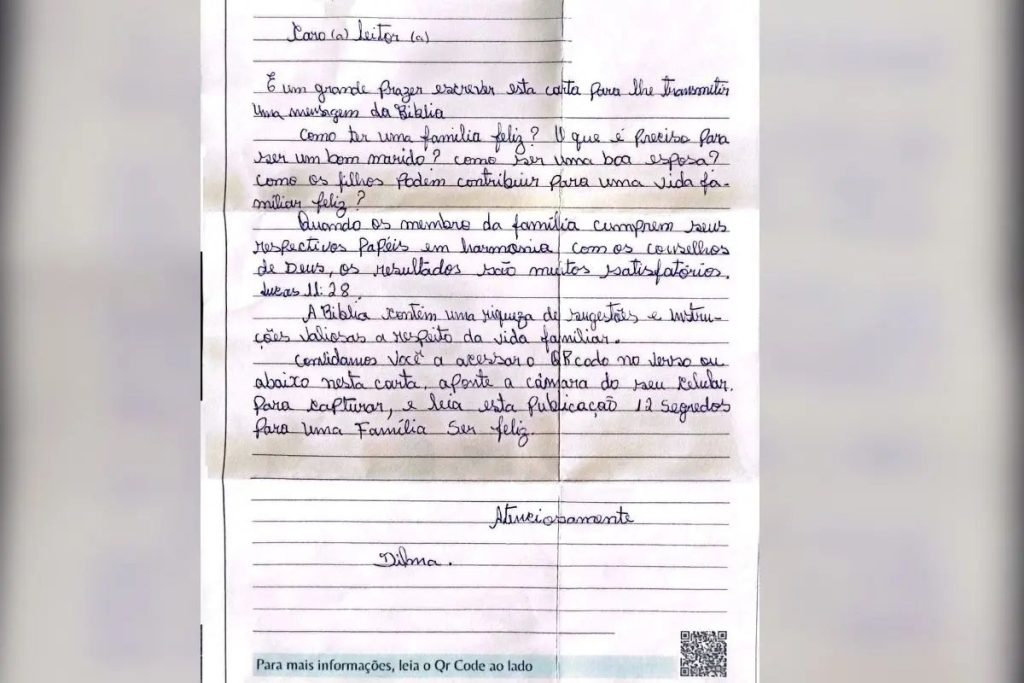 Caro (a) leitor (a)
É um grande prazer escrever esta carta para lhe transmitir
uma mensagem da Biblia
Como ter uma familia feliz? O que é preciso para
ser um bom marido? como ser uma boa esposa?
como os filhos podem contribuir para uma vida fa-
miliar feliz?
Quando os membro da família cumprem seus
respectivos papéis em harmonia com os conselhos
de Deus, os resultados são muitos satisfatórios.
Lucas 11:28.
A Biblia contém uma riqueza de sugestões e instru-
ções valiosas a respeito da vida familiar.
Convidamos você a acessar o QR code no verso ou
abaixo nesta carta, aponte a câmara do seu celular.
Para capturar, e leia esta publicação 12 segredos
para uma Família Ser feliz.
Atenciosamente
Dilma.
Para mais informações, leia o Qr Code ao lado